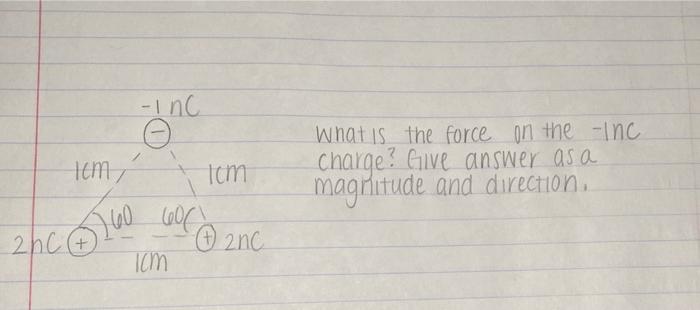 -1 nC
What is the force on the -1nC
charge? Give answer as a
magnitude and direction.
1cm
1cm
60
60
2nC +
+ 2nC
1cm